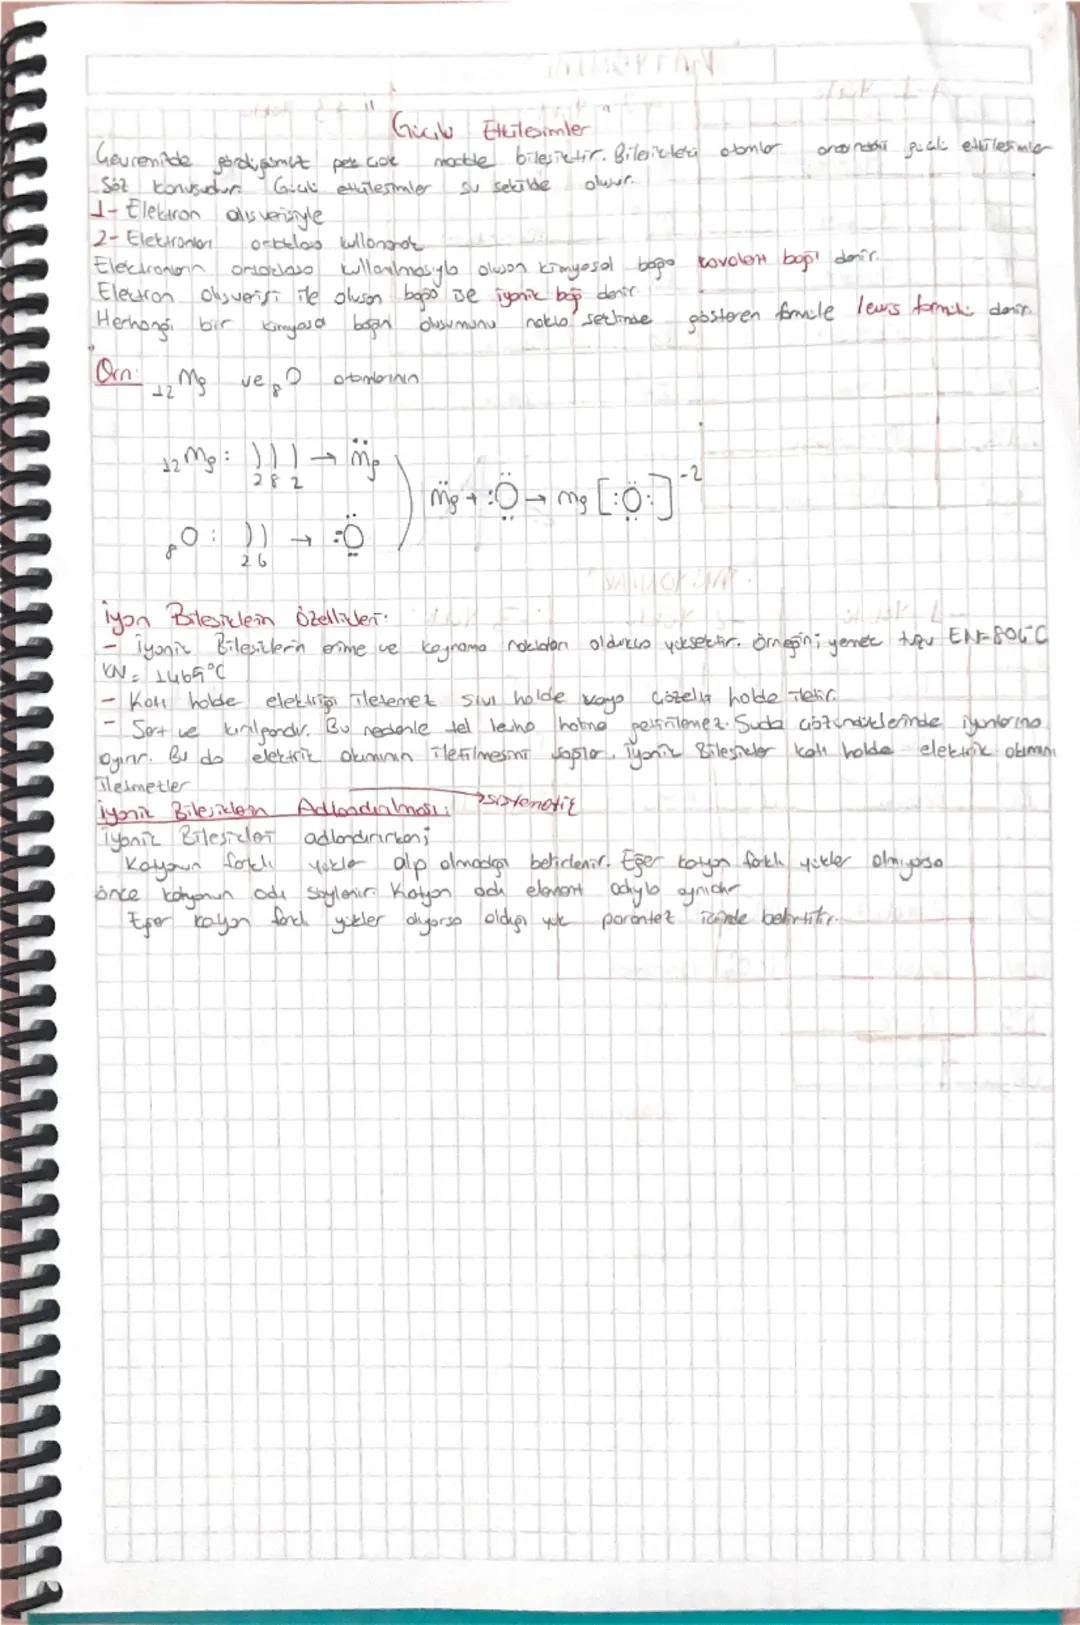 "Güçlü Etkilesimler"
Çevremizde gördügümüz pek çok madde bilesiktir. Bilesikteki atomlar arasındaki güçlü etkilesimler
Söz konusudur. Güçlü etkilesimler su sekilde olusur.
1- Elektron alısverisiyle
2- Elektronları ortaklasa kullanarak
Elektronların ortaklasa kullanılmasıyla olusan kimyasal baga kovalent bagı denir.
Elektron alısverisi ile olusan baga ise iyonik bag denir.
Herhangi bir kimyasal bagın olusumunu nokta seklinde gösteren formüle lewis formülü denir.
Örn: 12Mg ve 8O atomlarının
12Mg: ) ) ) → M̈g
2 8 2
M̈g + :Ö: → Mg [:Ö:]⁻²
8O: ) ) → :Ö
2 6
İyon Bilesiklerin Özellikleri:
- İyonik Bilesiklerin erime ve kaynama noktaları oldukca yüksektir. Örnegin; yemek tuzu EN=804°C
KN= 1465°C
- Katı halde elektrigi iletemez sıvı halde veya çözelti halde iletir.
- Sert ve kırılgandır. Bu nedenle tel levha haline getirilemez. Suda çözündüklerinde iyonlarına
ayrılır. Bu da elektrik akımının iletilmesini saglar. İyonik Bilesikler katı halde elektrik akımını
iletmezler
İyonik Bilesiklerin Adlandırılması: → sistematik
İyonik Bilesikleri adlandırırken;
Katyonun farklı yükler alıp almadıgı belirlenir. Eger katyon farklı yükler almıyorsa
önce katyonun adı söylenir. Katyon adı element adıyla aynıdır
Eger katyon farklı yükler alıyorsa aldıgı yük parantez içinde belirtilir.